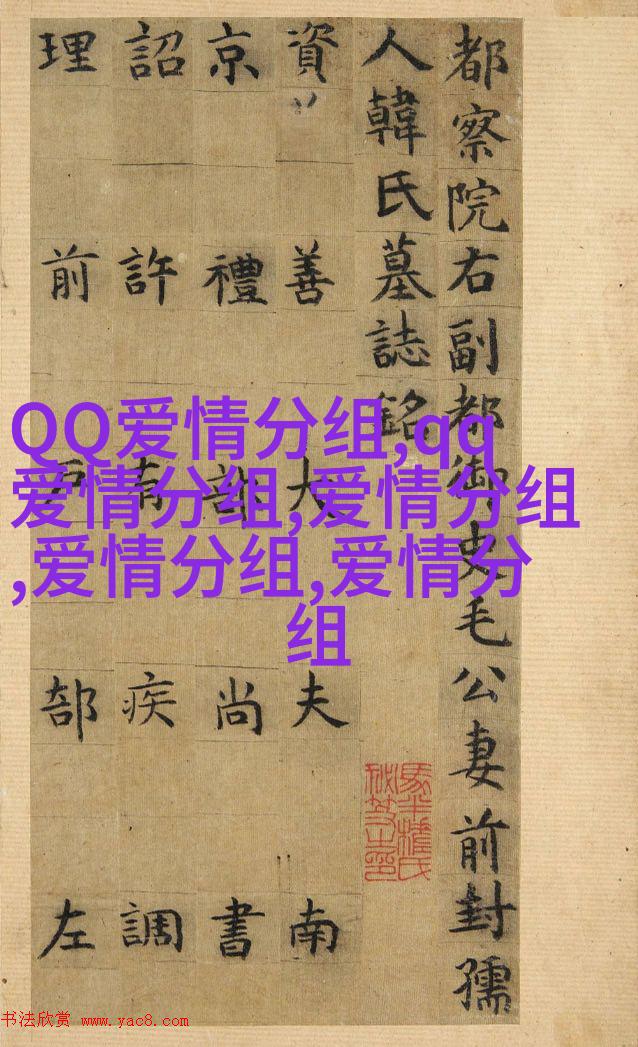 都察院右副都御史毛公妻前封孺
人韓氏墓誌銘
資善大夫南
京禮部尚書
詔許 疾調
理前戶部左
QQ爱情分组,qq
爱情分组,爱情分组
,爱情分组,爱情分
组
书法欣赏 www.yac8.com